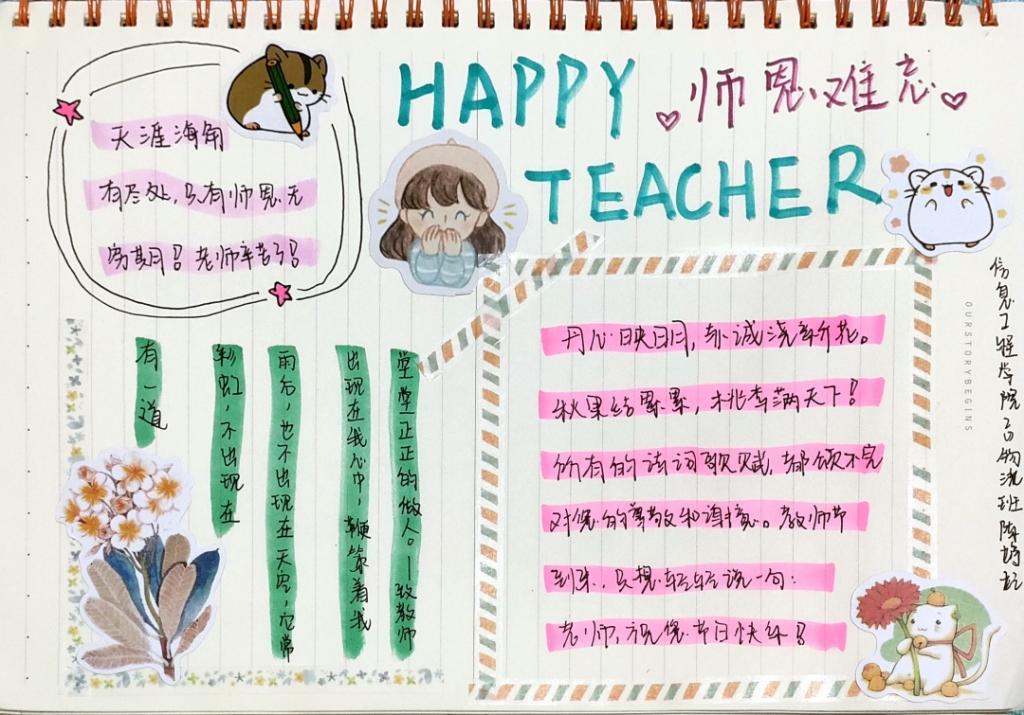 HAPPY
师恩难忘
TEACHER
天涯海角
有尽处,只有师恩无
穷期!老师辛苦了!
有一道
彩虹,不出现在
雨后,也不出现在天空,它常
出现在我心中 鞭策着我
堂堂正正的做人。—致教师
丹心映日月,赤诚浇新花。
秋果结累累,桃李满天下!
所有的诗词歌赋,都颂不完
对您的尊敬和谢意。教师节
到来,只想轻轻说一句:
老师,祝您节日快乐!
OURSTORYBEGINS
信息工程学院 物流班 陈